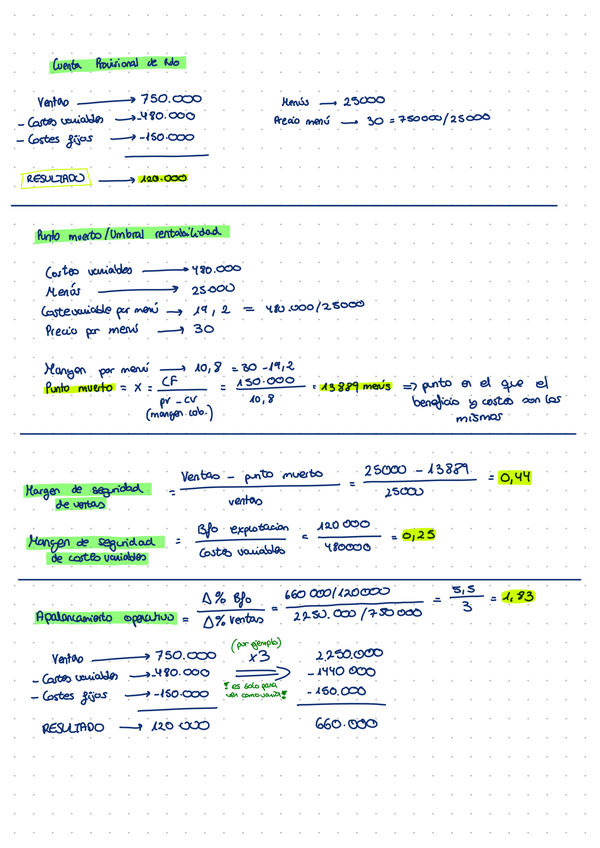 Cuenta Provisional de Rdo
Ventas → 750.000
Menús → 25000
- Costes variables → -480.000
Precio menú → 30 = 750000/25000
- Costes fijos → -150.000
RESULTADO → 120.000
Punto muerto/Umbral rentabilidad
Costes variables → 480.000
Menús → 25.000
Coste variable por menú → 19,2 = 480.000/25000
Precio por menú → 30
Margen por menú → 10,8 = 30 - 19,2
Punto muerto = x = CF / pv - cv (margen cob.) = 150.000 / 10,8 = 13889 menús => punto en el que el
beneficio y costes son los
mismos
Margen de seguridad
de ventas = Ventas - punto muerto / ventas = 25000 - 13889 / 25000 = 0,44
Margen de seguridad
de costes variables = Bfo explotación / Costes variables = 120000 / 480000 = 0,25
Apalancamiento operativo = Δ% Bfo / Δ% Ventas = 660000/120000 / 2250.000/750000 = 5,5 / 3 = 1,83
(por ejemplo)
Ventas → 750.000 x3 2,250,000
- Costes variables → -480.000 -1440000
- Costes fijos → -150.000 -150.000
! es solo para
ver como varía !
RESULTADO → 120000 660.000